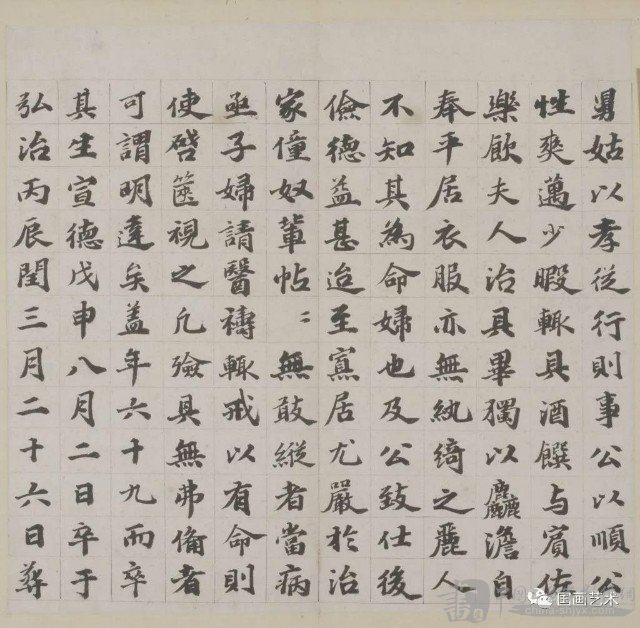 舅姑以孝從行則事公以順公
性爽邁少暇輒具酒饌与賓佐
樂飲夫人治具畢獨以麤澹自
奉平居衣服亦無紈綺之麗人
不知其為命婦也及公致仕後
儉德益甚迨至寡居尤嚴於治
家僮奴輩帖〻無敢縱者當病
亟子婦請醫禱輒戒以有命則
使啓篋視之凡殮具無弗備者
可謂明達矣蓋年六十九而卒
其生宣德戊申八月二日卒于
弘治丙辰閏三月二十六日葬
国画艺术